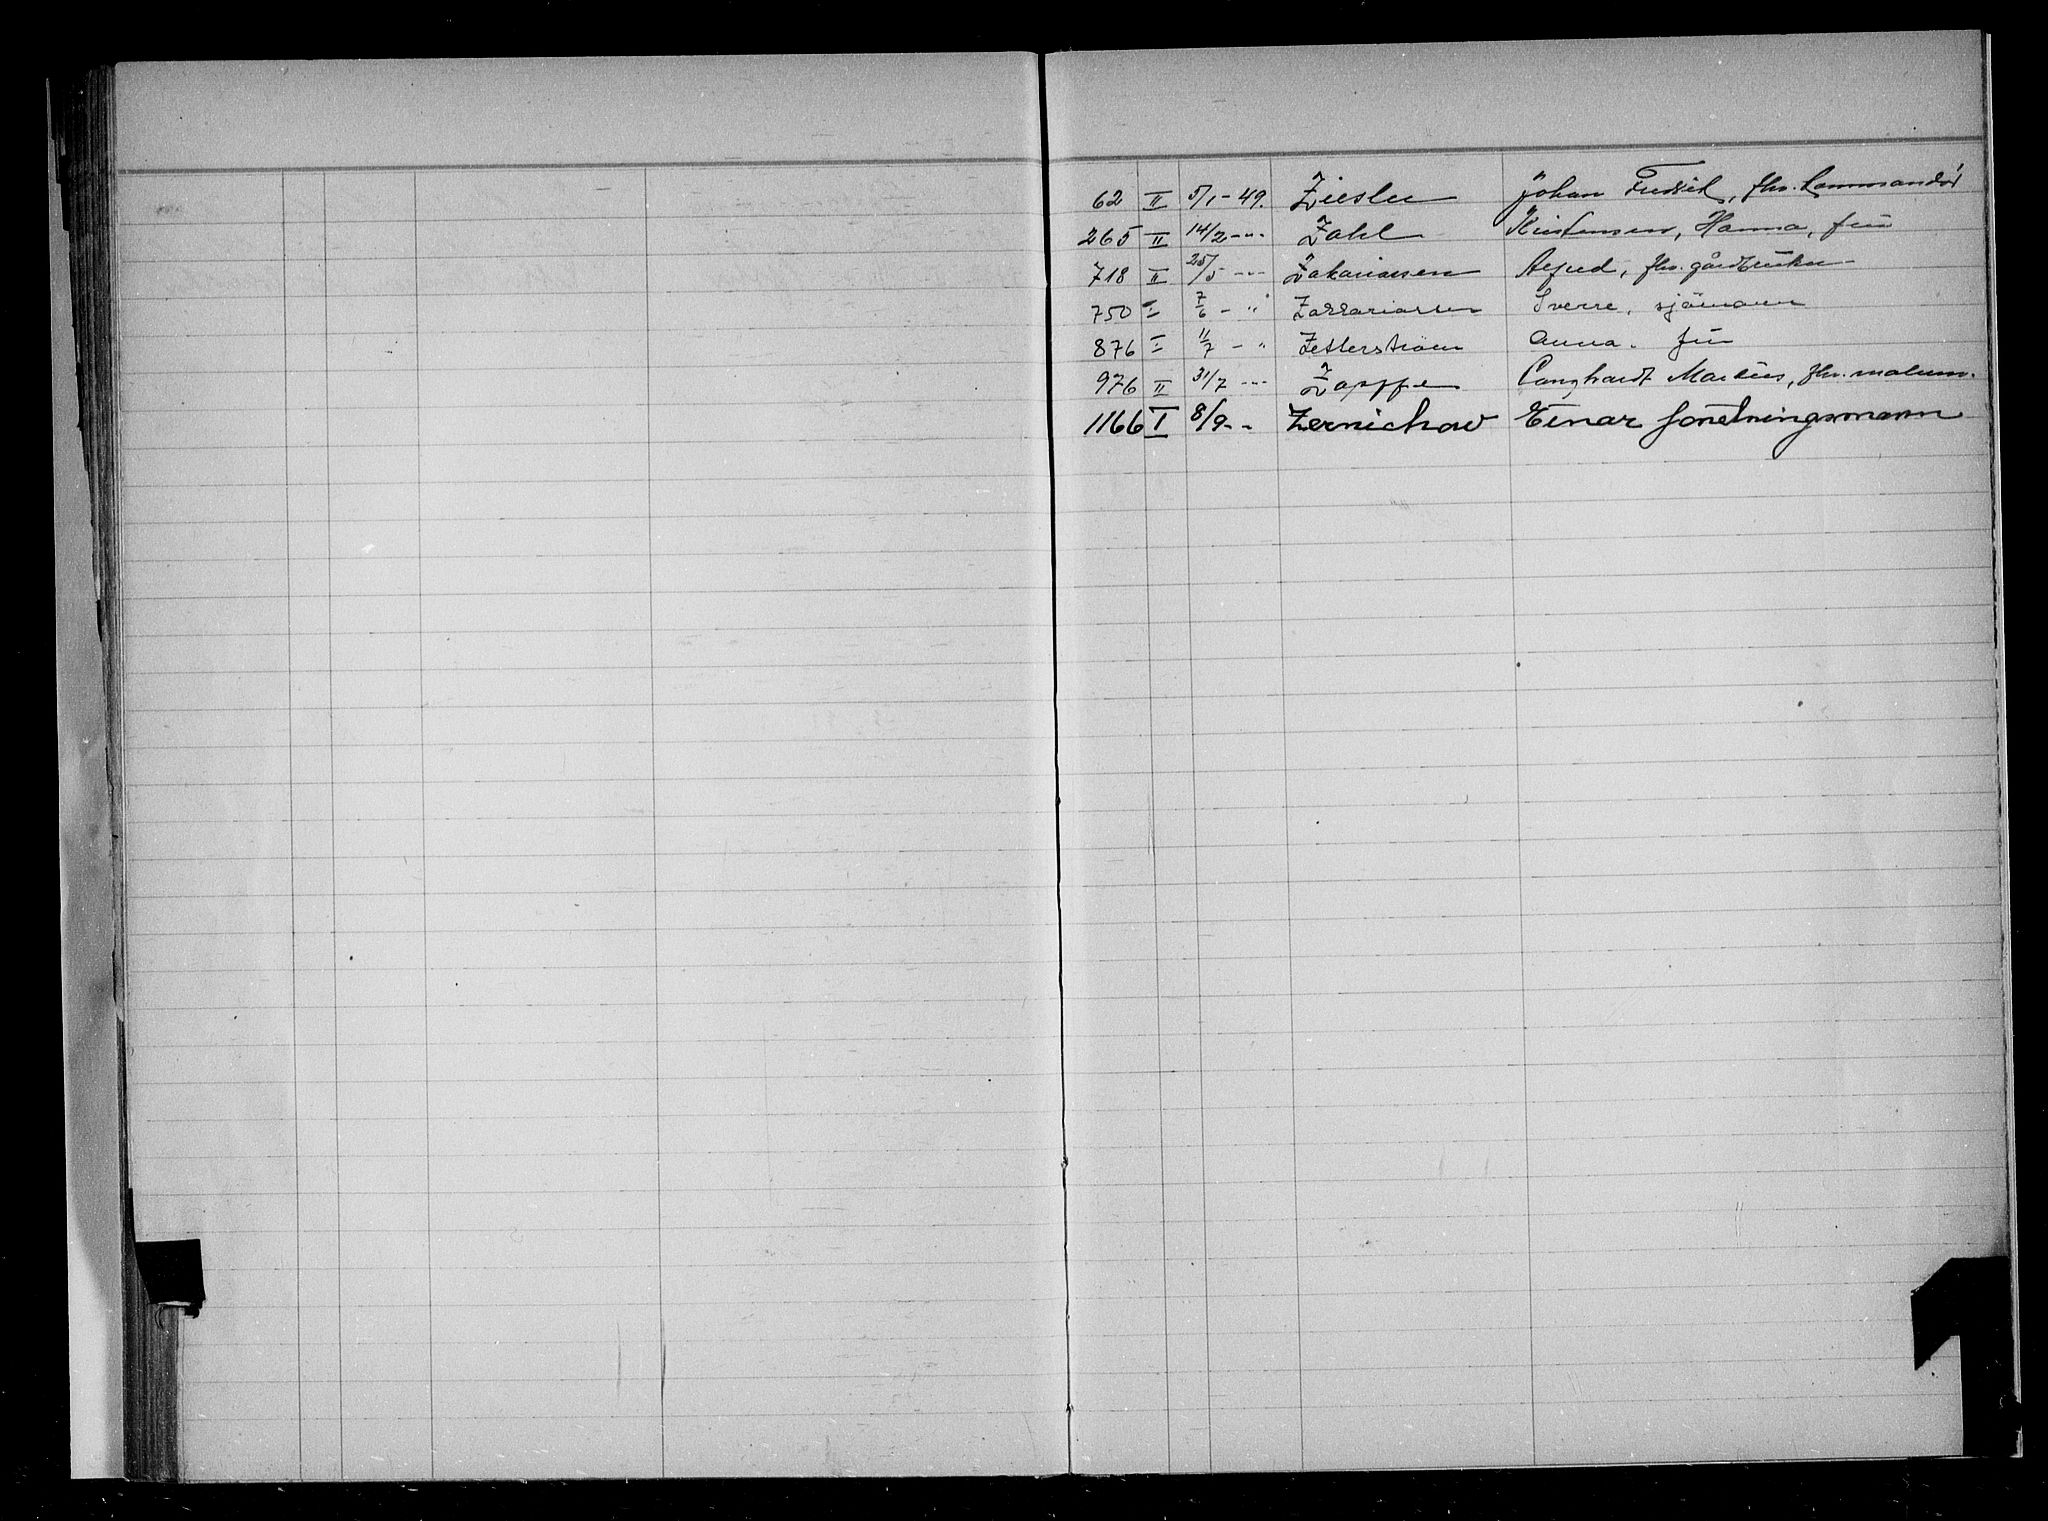 62 II 5/1-49. Ziesler Johan Fredrik, fhv. kommandør
265 II 14/2 -"- Zahl Kristensen, Hanna, frue
718 II 25/5 -"- Zakariassen Alfred, fhv. gårdbruker
750 I 7/6 - " Zakkariassen Sverre, sjömann
876 I 11/7 - " Zetterstrøm Anna. frue
976 II 31/7 -"- Zapffe Marius, fhv.
1166 I 8/9 - - Zernichow Einar forretningsmann